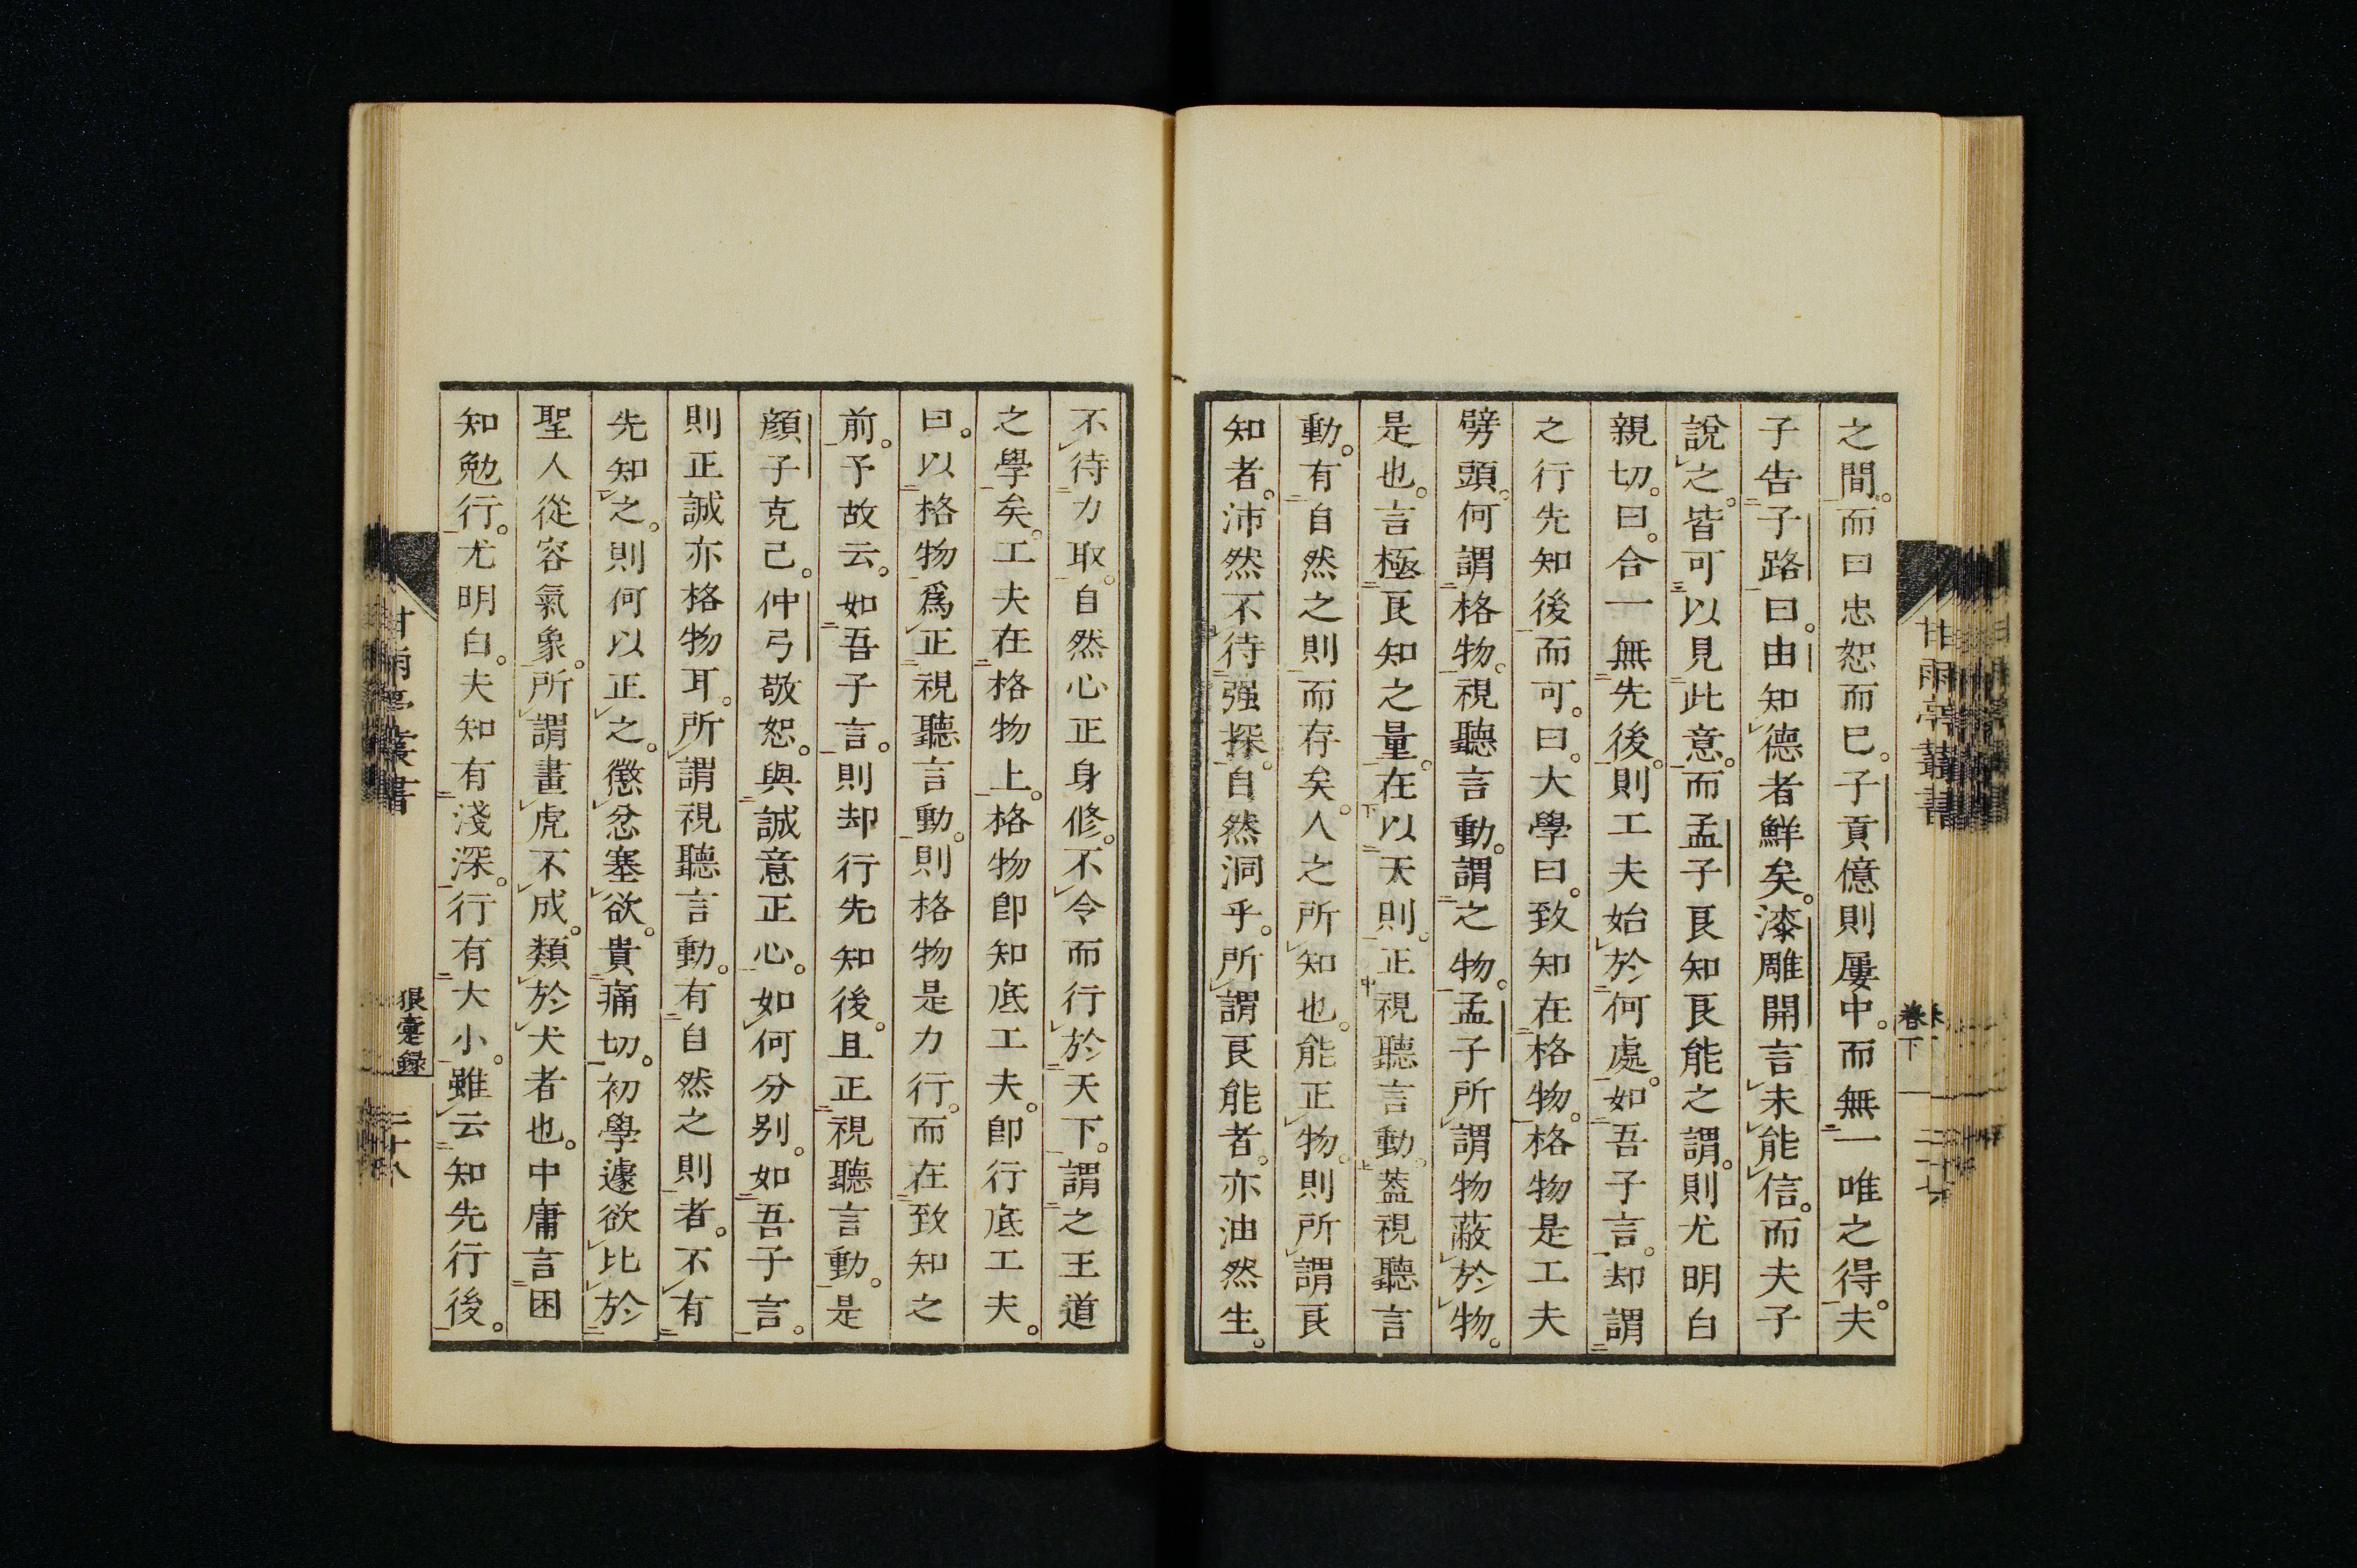 之間。而曰忠恕而已。子貢億則屢中。而無一唯之得。夫
子告子路曰。由知德者鮮矣。漆雕開言未能信。而夫子
說之。皆可以見此意。而孟子良知良能之謂。則尤明白
親切。曰。合一無先後。則工夫始於何處。如吾子言。却謂
之行先知後而可。曰。大學曰。致知在格物。格物是工夫
劈頭。何謂格物。視聽言動。謂之物。孟子所謂物蔽於物。
是也。言極良知之量。在以天則。正視聽言動。蓋視聽言
動。有自然之則而存矣。人之所知也。能正物。則所謂良
知者。沛然不待强探。自然洞乎。所謂良能者。亦油然生。
甘雨亭叢書
卷下
不待力取。自然心正身修。不令而行於天下。謂之王道
之學矣。工夫在格物上。格物卽知底工夫。卽行底工夫。
曰。以格物爲正視聽言動。則格物是力行。而在致知之
前。予故云。如吾子言。則却行先知後。且正視聽言動。是
顏子克己。仲弓敬恕。與誠意正心。如何分別。如吾子言。
則正誠亦格物耳。所謂視聽言動。有自然之則者。不有
先知之。則何以正之。懲忿塞欲。貴痛切。初學遽欲比於
聖人從容氣象。所謂畫虎不成。類於犬者也。中庸言困
知勉行。尤明白。夫知有淺深。行有大小。雖云知先行後。
甘雨亭叢書
狼疐録
二十八